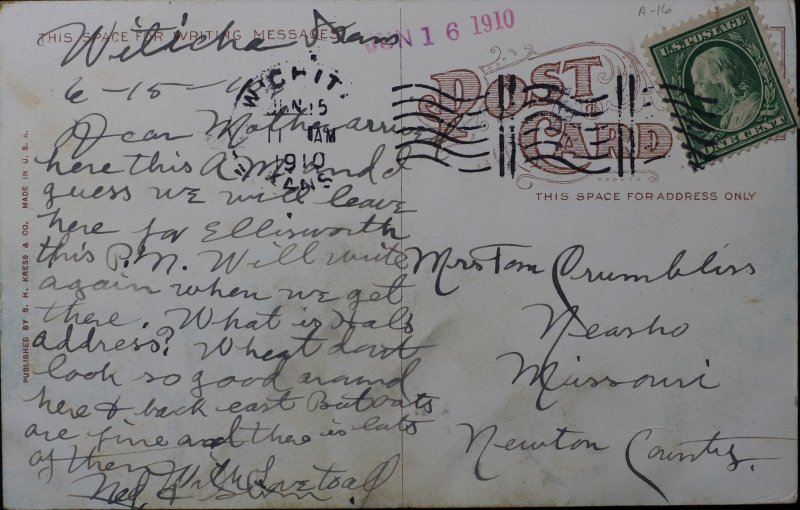 THIS SPACE FOR WRITING MESSAGES
Witicha Kans
6-15-1
Dear Mother arrived
here this A.M. and I
guess we will leave
here for Ellisworth
this P.M. Will write
again when we get
there. What is Hals
address? Wheat dont
look so good around
here & back east But oats
are fine and there is lots
of them With Love to all
Ned &
PUBLISHED BY S. H. KRESS & CO. MADE IN U. S. A.
WICHIT
JUN 15
11 AM
1910
KANS
JUN 16 1910
A-16
U.S. POSTAGE
ONE CENT
POST
CARD
THIS SPACE FOR ADDRESS ONLY
Mrs Tom Crumbliss
Neosho
Missouri
Newton County.